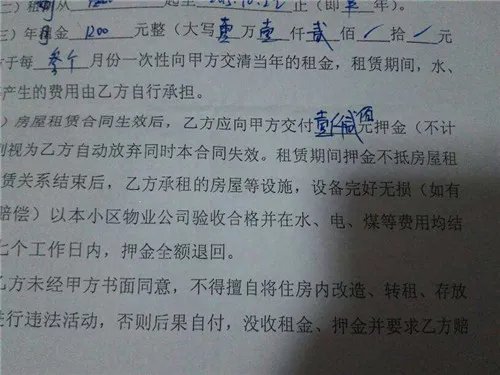 二）租期从 起至 止（即 年）。
三）年租金 1200 元整（大写壹万壹仟贰佰／拾／元
于每叁个月份一次性向甲方交清当年的租金，租赁期间，水、
产生的费用由乙方自行承担。
）房屋租赁合同生效后，乙方应向甲方交付壹仟贰佰元押金（不计
则视为乙方自动放弃同时本合同失效。租赁期间押金不抵房屋租
赁关系结束后，乙方承租的房屋等设施，设备完好无损（如有
赔偿）以本小区物业公司验收合格并在水、电、煤等费用均结
七个工作日内，押金全额退回。
乙方未经甲方书面同意，不得擅自将住房内改造、转租、存放
进行违法活动，否则后果自付，没收租金、押金并要求乙方赔